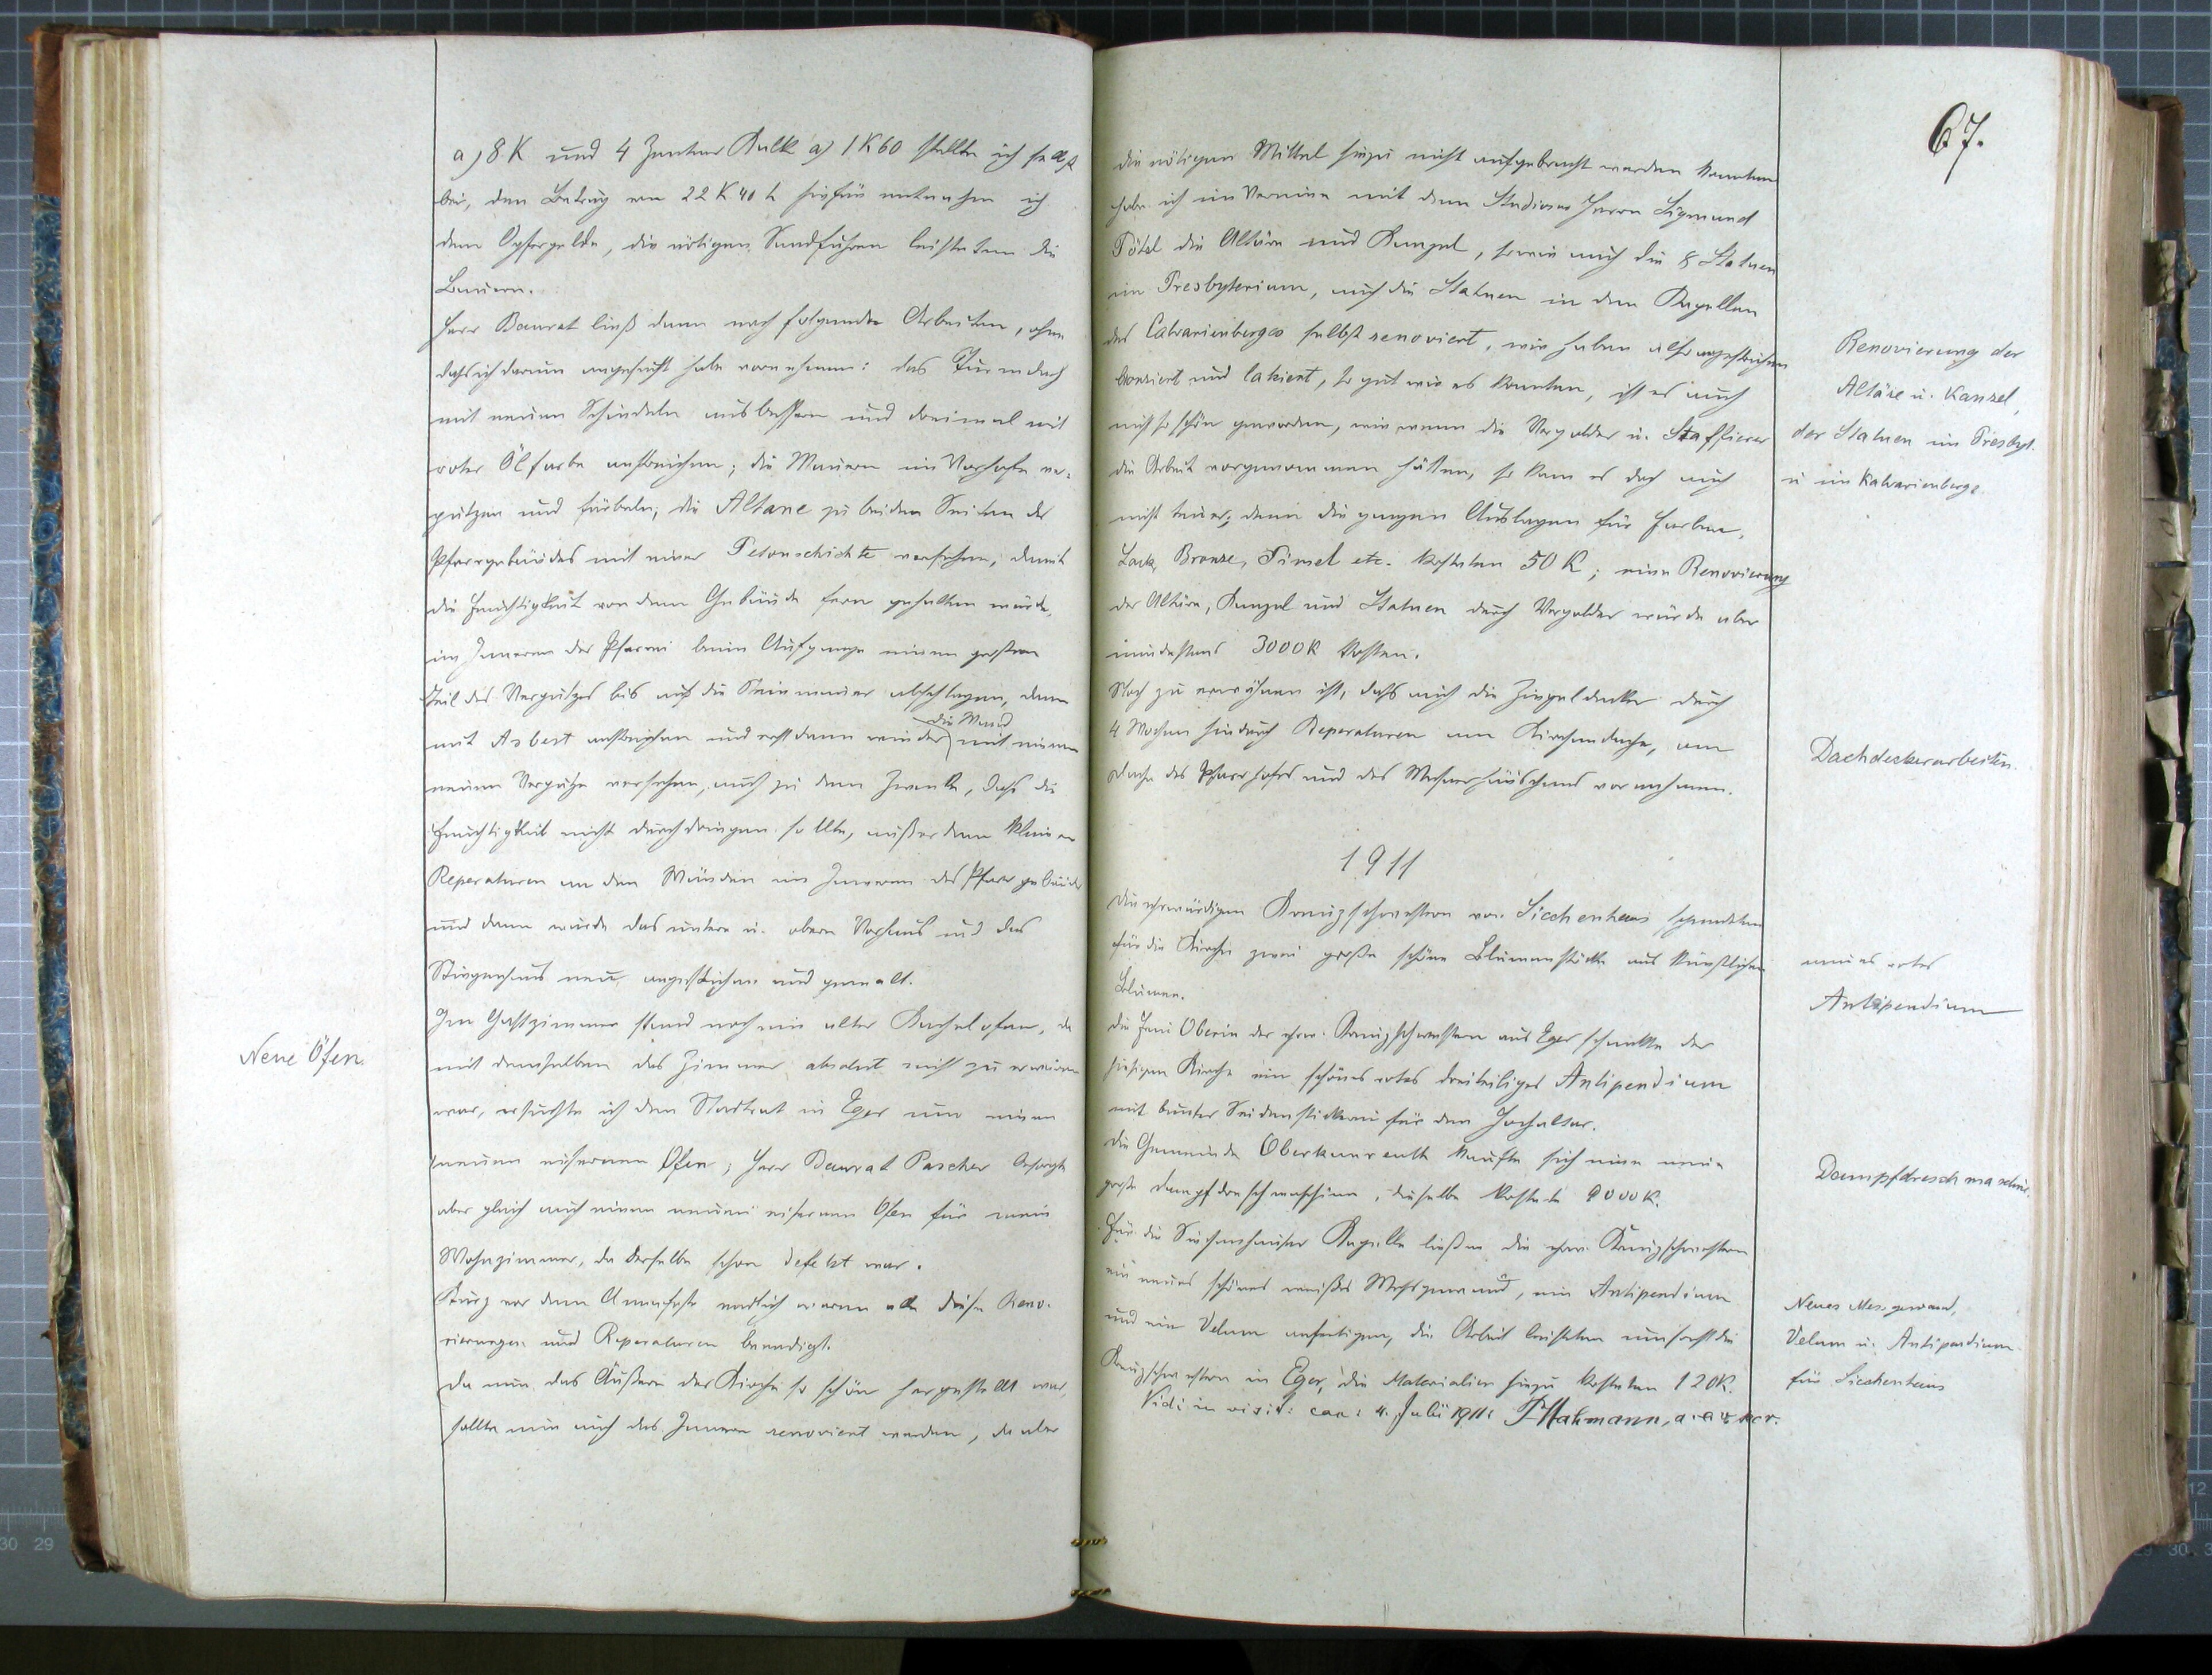 a) 8 K und 4 Zentner Kalk a) 1 K 60 stellte ich selbst
bei, den Betrag von 22 K 40 h hiefür entnahm ich
dem Opfergelde, die nötigen Sandfuhren leisteten die
Bauern.
Herr Baurat ließ dann noch folgende Arbeiten, ohne
daß ich darum angesucht habe vornehmen: das Turmdach
mit neuen Schindeln ausbessern und dreimal mit
roter Ölfarbe anstreichen; die Mauern im Vorhofe ver=
putzen und färbeln; die Altane zu beiden Seiten des
Pfarrgebäudes mit einer Petonschichte versehen, damit
die Feuchtigkeit von dem Gebäude fern gehalten würde,
im Inneren der Pfarrei beim Aufgange einen großen
Teil des Verputzes bis auf die Steinmauer abschlagen, dann
mit Asbest anstreichen und erst dann wieder die Wand mit einem
neuen Verputze versehen, auch zu dem Zwecke, daß die
Feuchtigkeit nicht durchdringen sollte, außerdem kleinere
Reperaturen an den Wänden im Inneren des Pfarrgebäudes
und dann wurde das untere u. obere Vorhaus und das
Stiegenhaus neu angestrichen und gemalt.
Neue Öfen.
Im Gastzimmer stand noch ein alter Kachelofen, da
mit demselben das Zimmer absolut nicht zu erwärmen
war, ersuchte ich den Stadtrat in Eger um einen
neuen eisernen Ofen; Herr Baurat Pascher besorgte
aber gleich auch einen neuen eisernen Ofen für mein
Wohnzimmer, da derselbe schon defekt war.
Kurz vor dem Annafeste endlich waren alle diese Reno-
vierungen und Reperaturen beendigt.
Da nun das Äußere der Kirche so schön hergestellt war,
sollte nun auch das Innere renoviert werden, da aber
67.
die nötigen Mittel hiezu nicht aufgebracht werden konnten
habe ich im Vereine mit dem Studiosus Herrn Sigmund
Pötzl die Altäre und Kanzel, sowie auch die 8 Statuen
im Presbyterium, auch die Statuen in den Kapellen
des Calvarienberges selbst renoviert, wir haben alles angestrichen
bronziert und lakiert, so gut wir es konnten, ist es auch
nicht so schön geworden, wie wenn die Vergolder u. Staffierer
die Arbeit vorgenommen hätten, so kam es doch auch
nicht teuer, denn die ganzen Auslagen für Farben,
Lack, Bronze, Pinsel etc. kosteten 50 K; eine Renovierung
der Altäre, Kanzel und Statuen durch Vergolder würde aber
mindestens 3000 K kosten.
Renovierung der
Altäre u. Kanzel,
der Statuen im Presbyt.
u. im Kalvarienberge
Noch zu erwähnen ist, daß auch die Ziegeldecker durch
4 Wochen hindurch Reperaturen am Kirchendache, am
Dache des Pfarrhofes und des Mesnerhäuschens vornahmen.
Dachdeckerarbeiten.
1911
Die ehrwürdigen Kreuzschwestern von Siechenhaus spendeten
für die Kirche zwei große schöne Blumenstöcke aus künstlichen
Blumen.
neues rotes
Antipendium
Die Frau Oberin der ehrw. Kreuzschwestern aus Eger schenkte der
hiesigen Kirche ein schönes rotes dreiteiliges Antipendium
mit bunter Seidenstickerei für den Hochaltar.
Die Gemeinde Oberkunreuth kaufte sich eine neue
große Dampfdreschmaschine, dieselbe kostete 9000 K.
Dampfdreschmaschine.
Für die Siechenhauser Kapelle ließen die ehrw. Kreuzschwestern
ein neues schönes weißes Meßgewand, ein Antipendium
und ein Velum anfertigen, die Arbeit leisteten umsonst die
Kreuzschwestern in Eger, die Materialien hiezu kosteten 120 K.
Neues Messgewand,
Velum u. Antipendium
für Siechenhaus
Vidi in visit: can: 4. Juli 1911: